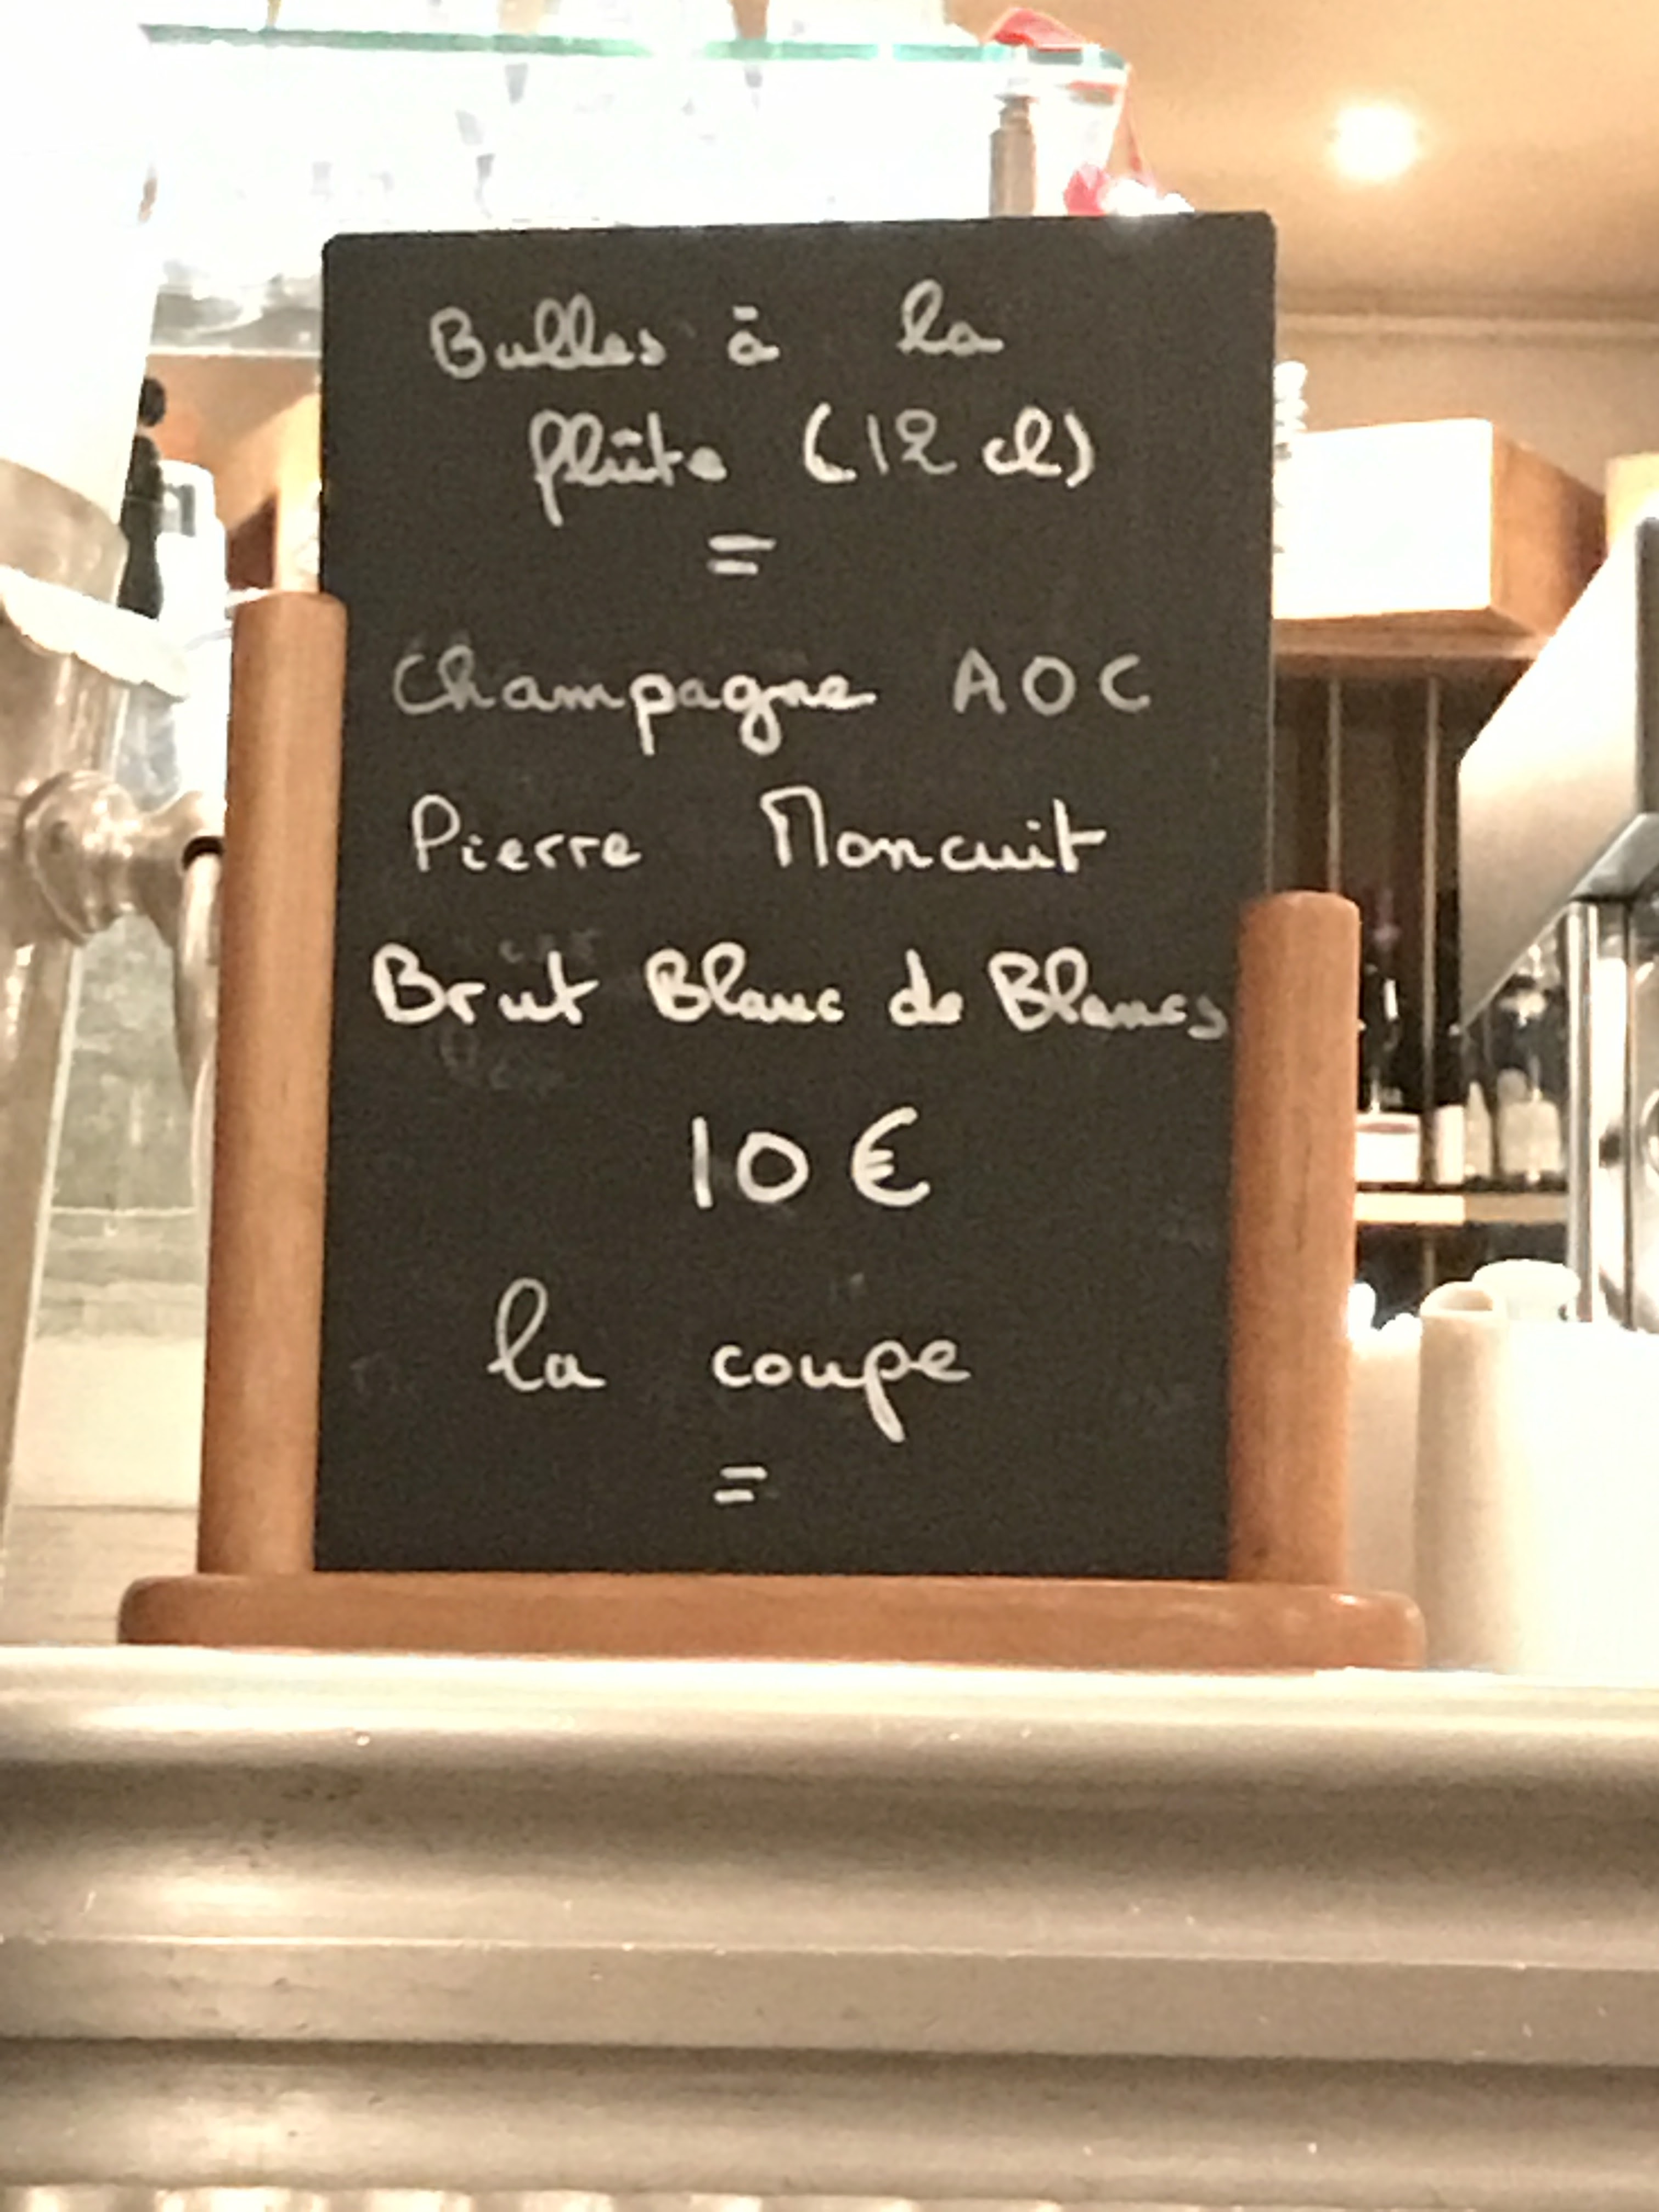 Bulles à la
flûte (12 cl)
=
Champagne AOC
Pierre Moncuit
Brut Blanc de Blancs
10 €
la coupe
=